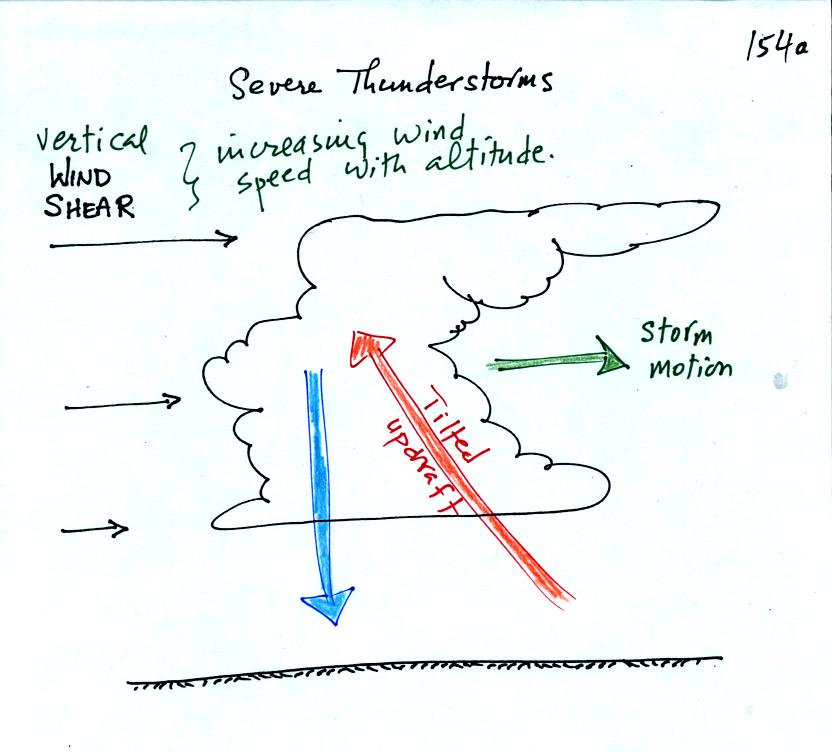 154a
Severe Thunderstorms
vertical } increasing wind
WIND speed with altitude.
SHEAR
Storm
motion
Tilted
updraft